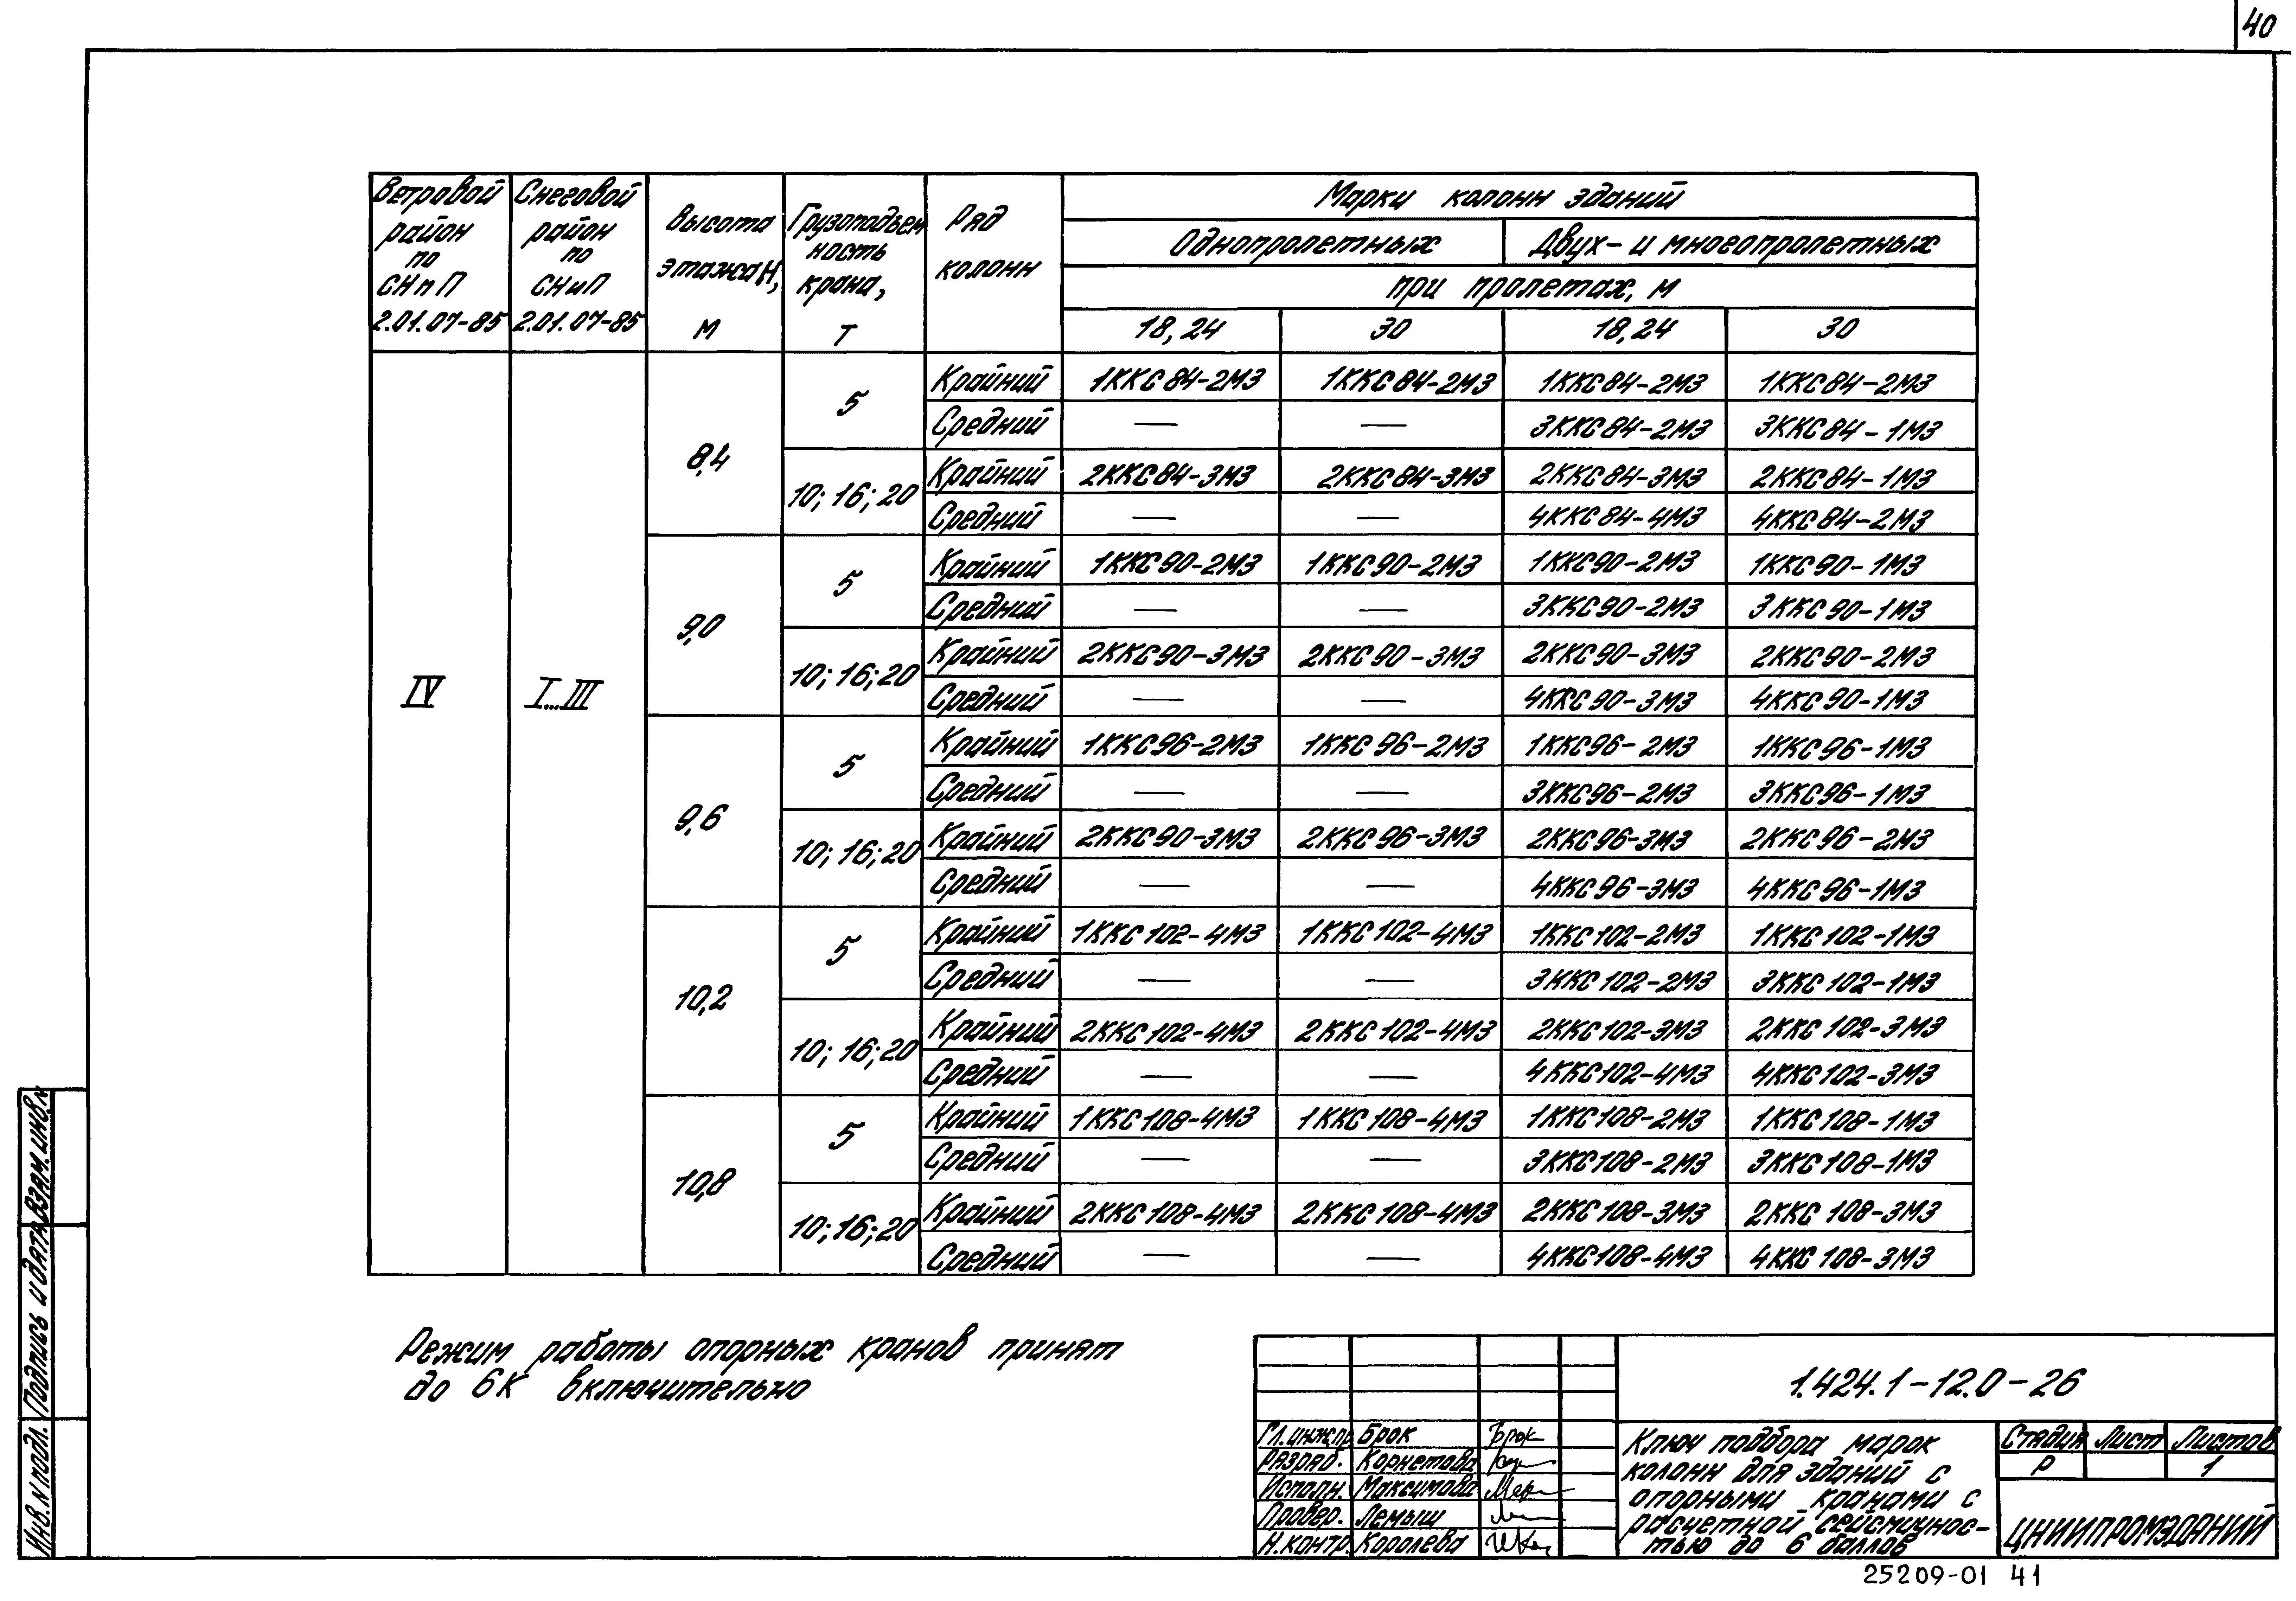 40
Ветровой район по СНиП 2.01.07-85
Снеговой район по СНиП 2.01.07-85
Высота этажа Н, м
Грузоподъемность крана, т
Ряд колонн
Марки колонн зданий
Однопролетных Двух- и многопролетных
при пролетах, м
18,24 30 18,24 30
IV I...III
8,4 5 Крайний 1ККС84-2М3 1ККС84-2М3 1ККС84-2М3 1ККС84-2М3
Средний — — 3ККС84-2М3 3ККС84-1М3
10; 16; 20 Крайний 2ККС84-3М3 2ККС84-3М3 2ККС84-3М3 2ККС84-1М3
Средний — — 4ККС84-4М3 4ККС84-2М3
9,0 5 Крайний 1ККС90-2М3 1ККС90-2М3 1ККС90-2М3 1ККС90-1М3
Средний — — 3ККС90-2М3 3ККС90-1М3
10; 16; 20 Крайний 2ККС90-3М3 2ККС90-3М3 2ККС90-3М3 2ККС90-2М3
Средний — — 4ККС90-3М3 4ККС90-1М3
9,6 5 Крайний 1ККС96-2М3 1ККС96-2М3 1ККС96-2М3 1ККС96-1М3
Средний — — 3ККС96-2М3 3ККС96-1М3
10; 16; 20 Крайний 2ККС90-3М3 2ККС96-3М3 2ККС96-3М3 2ККС96-2М3
Средний — — 4ККС96-3М3 4ККС96-1М3
10,2 5 Крайний 1ККС102-4М3 1ККС102-4М3 1ККС102-2М3 1ККС102-1М3
Средний — — 3ККС102-2М3 3ККС102-1М3
10; 16; 20 Крайний 2ККС102-4М3 2ККС102-4М3 2ККС102-3М3 2ККС102-3М3
Средний — — 4ККС102-4М3 4ККС102-3М3
10,8 5 Крайний 1ККС108-4М3 1ККС108-4М3 1ККС108-2М3 1ККС108-1М3
Средний — — 3ККС108-2М3 3ККС108-1М3
10; 16; 20 Крайний 2ККС108-4М3 2ККС108-4М3 2ККС108-3М3 2ККС108-3М3
Средний — — 4ККС108-4М3 4ККС108-3М3
Режим работы опорных кранов принят
до 6К включительно
Инв. N подл. Подпись и дата Взам. инв. N
1.424.1-12.0-26
Гл.инж.пр. Брок Брок
Разраб. Корнетова
Исполн. Максимова
Провер. Лемыш
Н.контр. Королева
Ключ подбора марок
колонн для зданий с
опорными кранами с
расчетной сейсмичнос-
тью до 6 баллов
Стадия Лист Листов
Р 1
ЦНИИПРОМЗДАНИЙ
25209-01 41